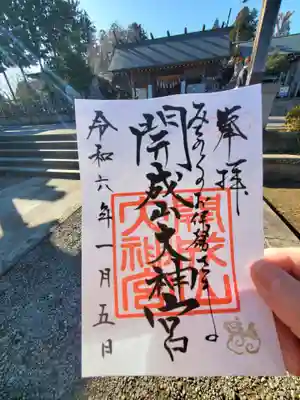 奉拝
みちのくのお伊勢さま
開成山大神宮
開成山大神宮
令和六年一月五日